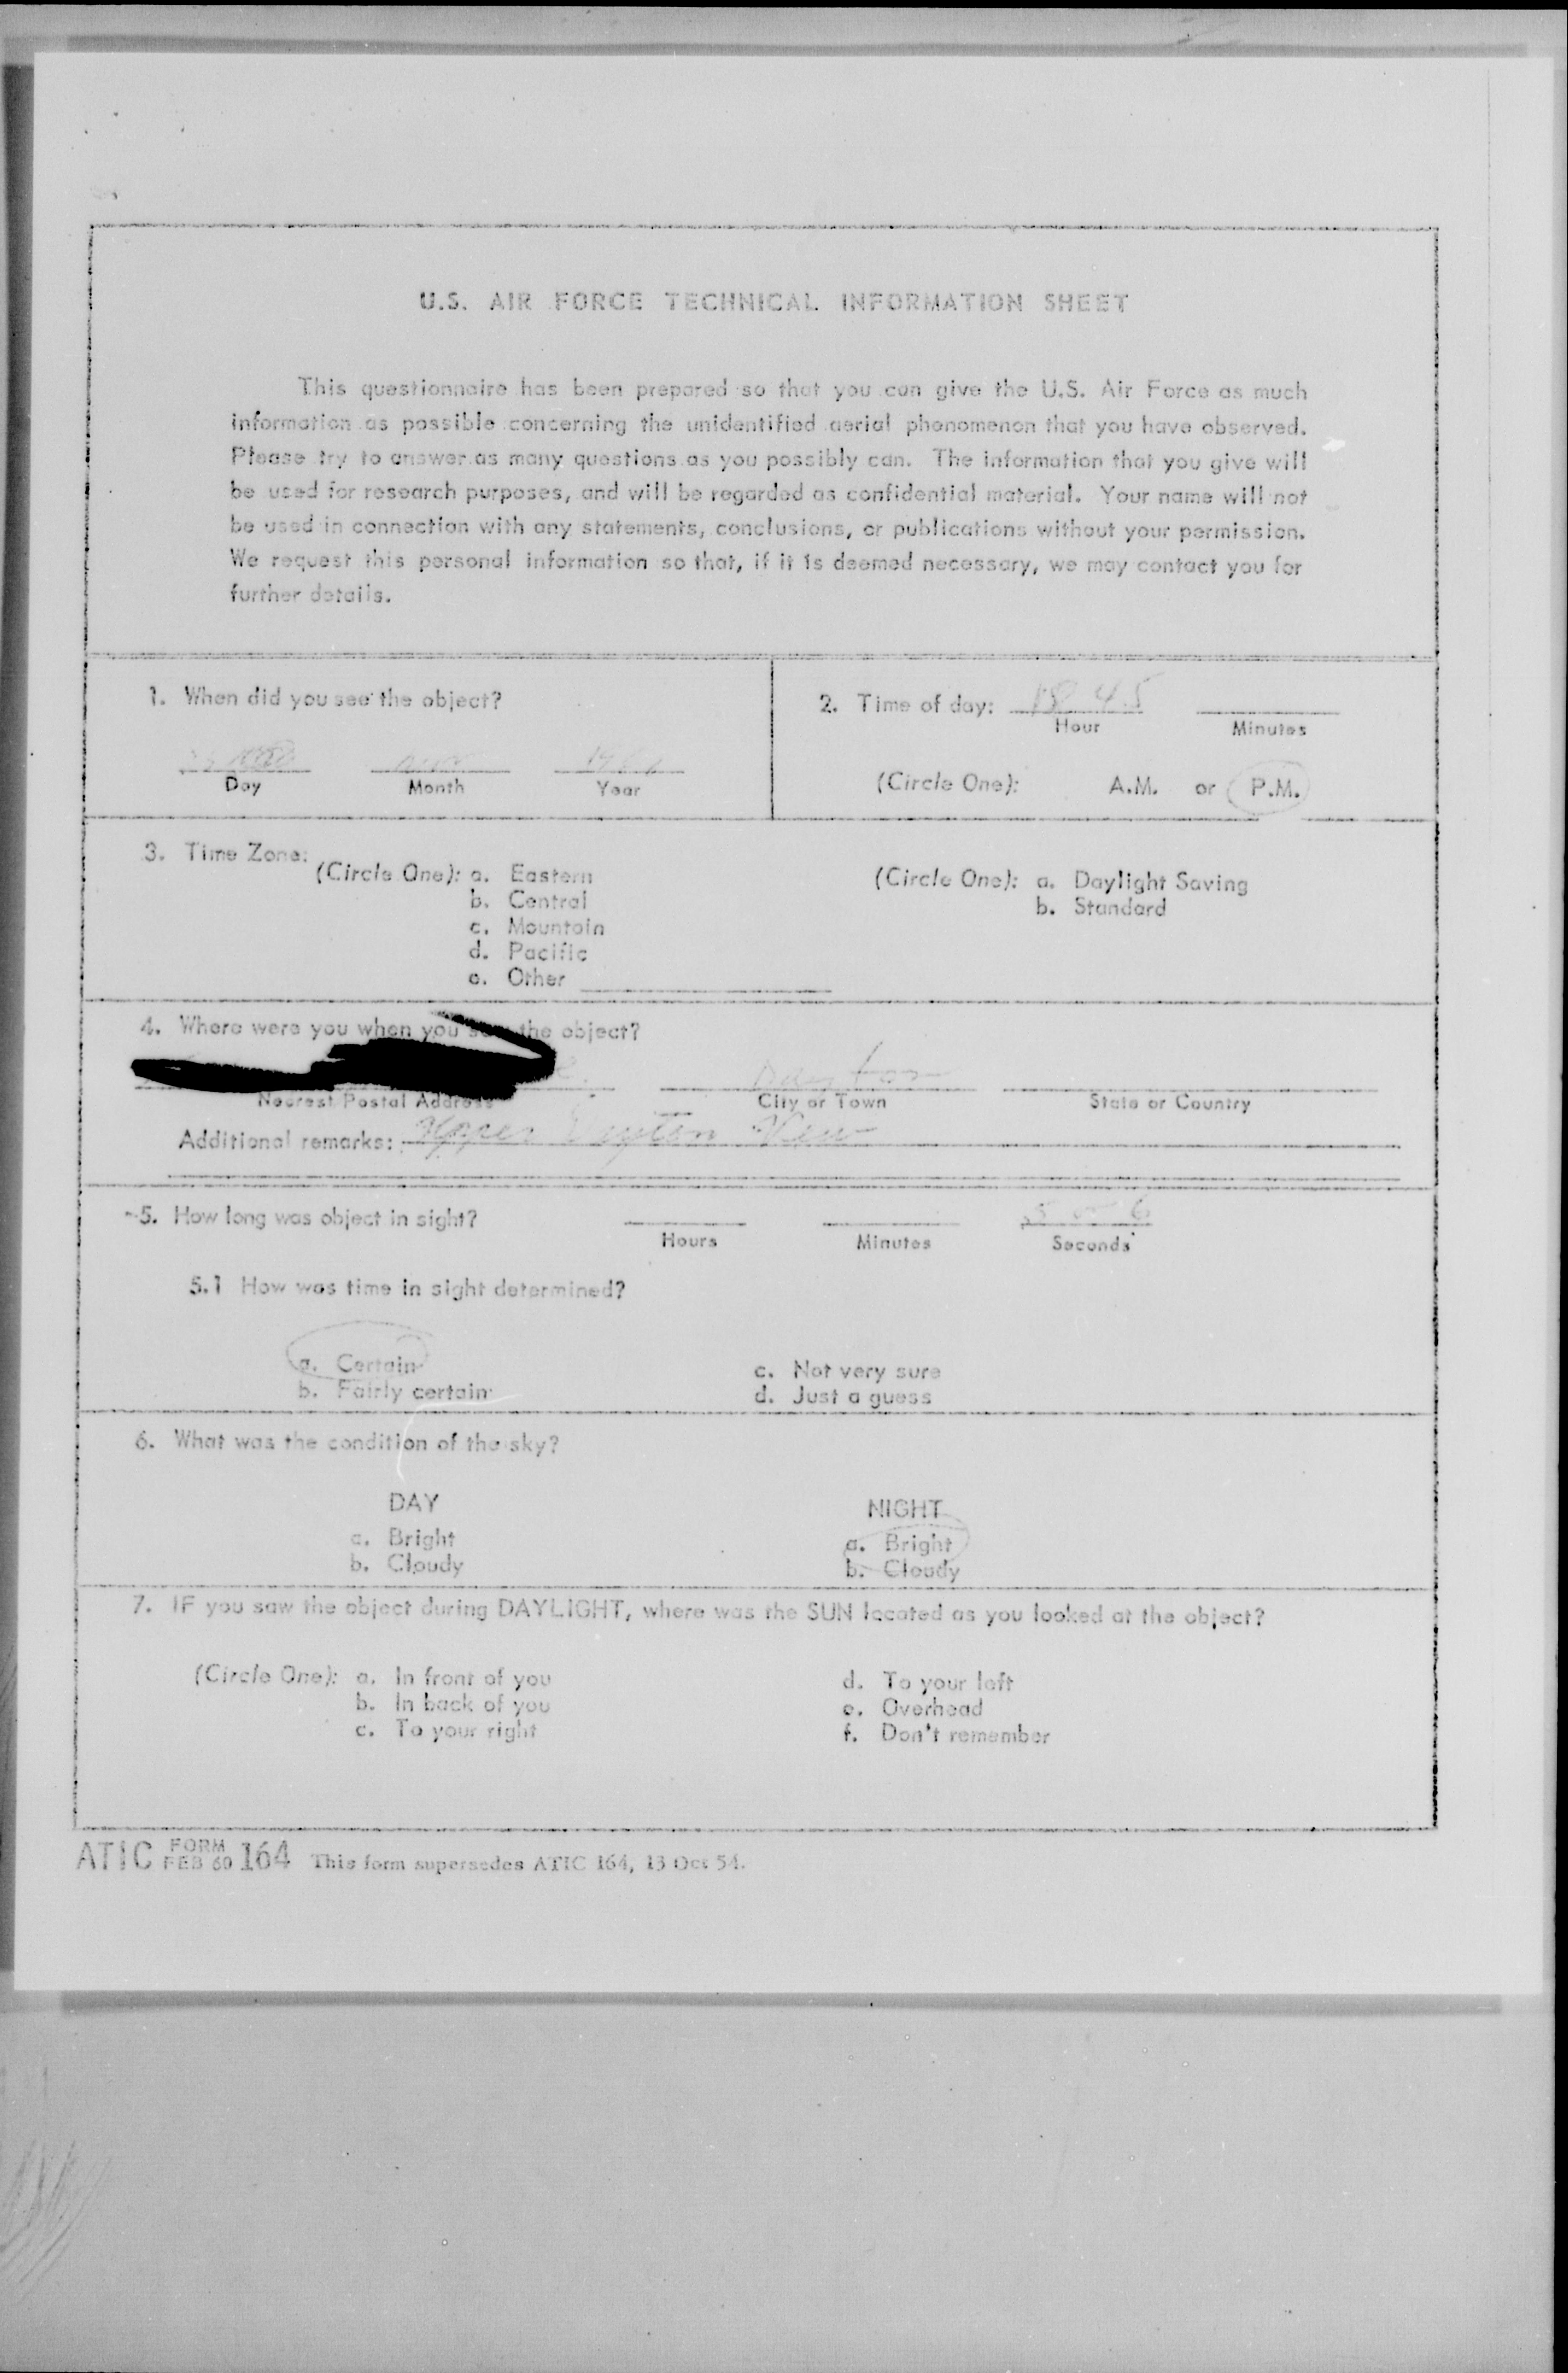 U.S. AIR FORCE TECHNICAL INFORMATION SHEET
This questionnaire has been prepared so that you can give the U.S. Air Force as much
information as possible concerning the unidentified aerial phenomenon that you have observed.
Please try to answer as many questions as you possibly can. The information that you give will
be used for research purposes, and will be regarded as confidential material. Your name will not
be used in connection with any statements, conclusions, or publications without your permission.
We request this personal information so that, if it is deemed necessary, we may contact you for
further details.
1. When did you see the object?
Day Month Year
2. Time of day: 18 45
Hour Minutes
(Circle One): A.M. or P.M.
3. Time Zone:
(Circle One): a. Eastern
b. Central
c. Mountain
d. Pacific
e. Other
(Circle One): a. Daylight Saving
b. Standard
4. Where were you when you saw the object?
Dayton
Nearest Postal Address City or Town State or Country
Additional remarks: Upper Dayton View
5. How long was object in sight? 5 or 6
Hours Minutes Seconds
5.1 How was time in sight determined?
a. Certain
b. Fairly certain
c. Not very sure
d. Just a guess
6. What was the condition of the sky?
DAY
a. Bright
b. Cloudy
NIGHT
a. Bright
b. Cloudy
7. IF you saw the object during DAYLIGHT, where was the SUN located as you looked at the object?
(Circle One): a. In front of you
b. In back of you
c. To your right
d. To your left
e. Overhead
f. Don't remember
ATIC FORM FEB 60 164 This form supersedes ATIC 164, 13 Oct 54.